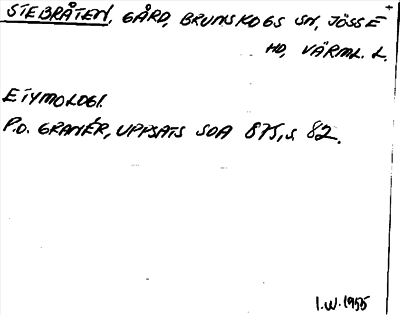 STEBRÅTEN, GÅRD, BRUNSKOGS SN, JÖSSE
HD, VÄRML. L.
ETYMOLOGI.
P.O. GRANÉR, UPPSATS SOA 875, s 82.
I.W. 1955